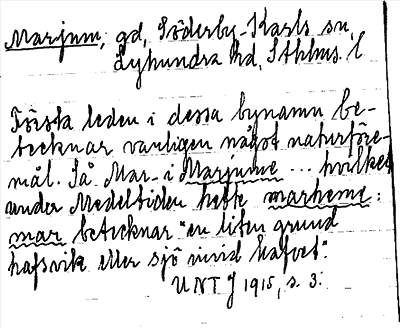 Marjum, gd, Söderby-Karls sn,
Lyhundra hd, Sthlms. l
Första leden i dessa bynamn be-
tecknar vanligen något naturföre-
mål. Så Mar- i Marjumme ... hvilket
under Medeltiden hette marheme:
mar betecknar "en liten grund
hafsvik eller sjö invid hafvet".
UNT J 1915, s. 3.